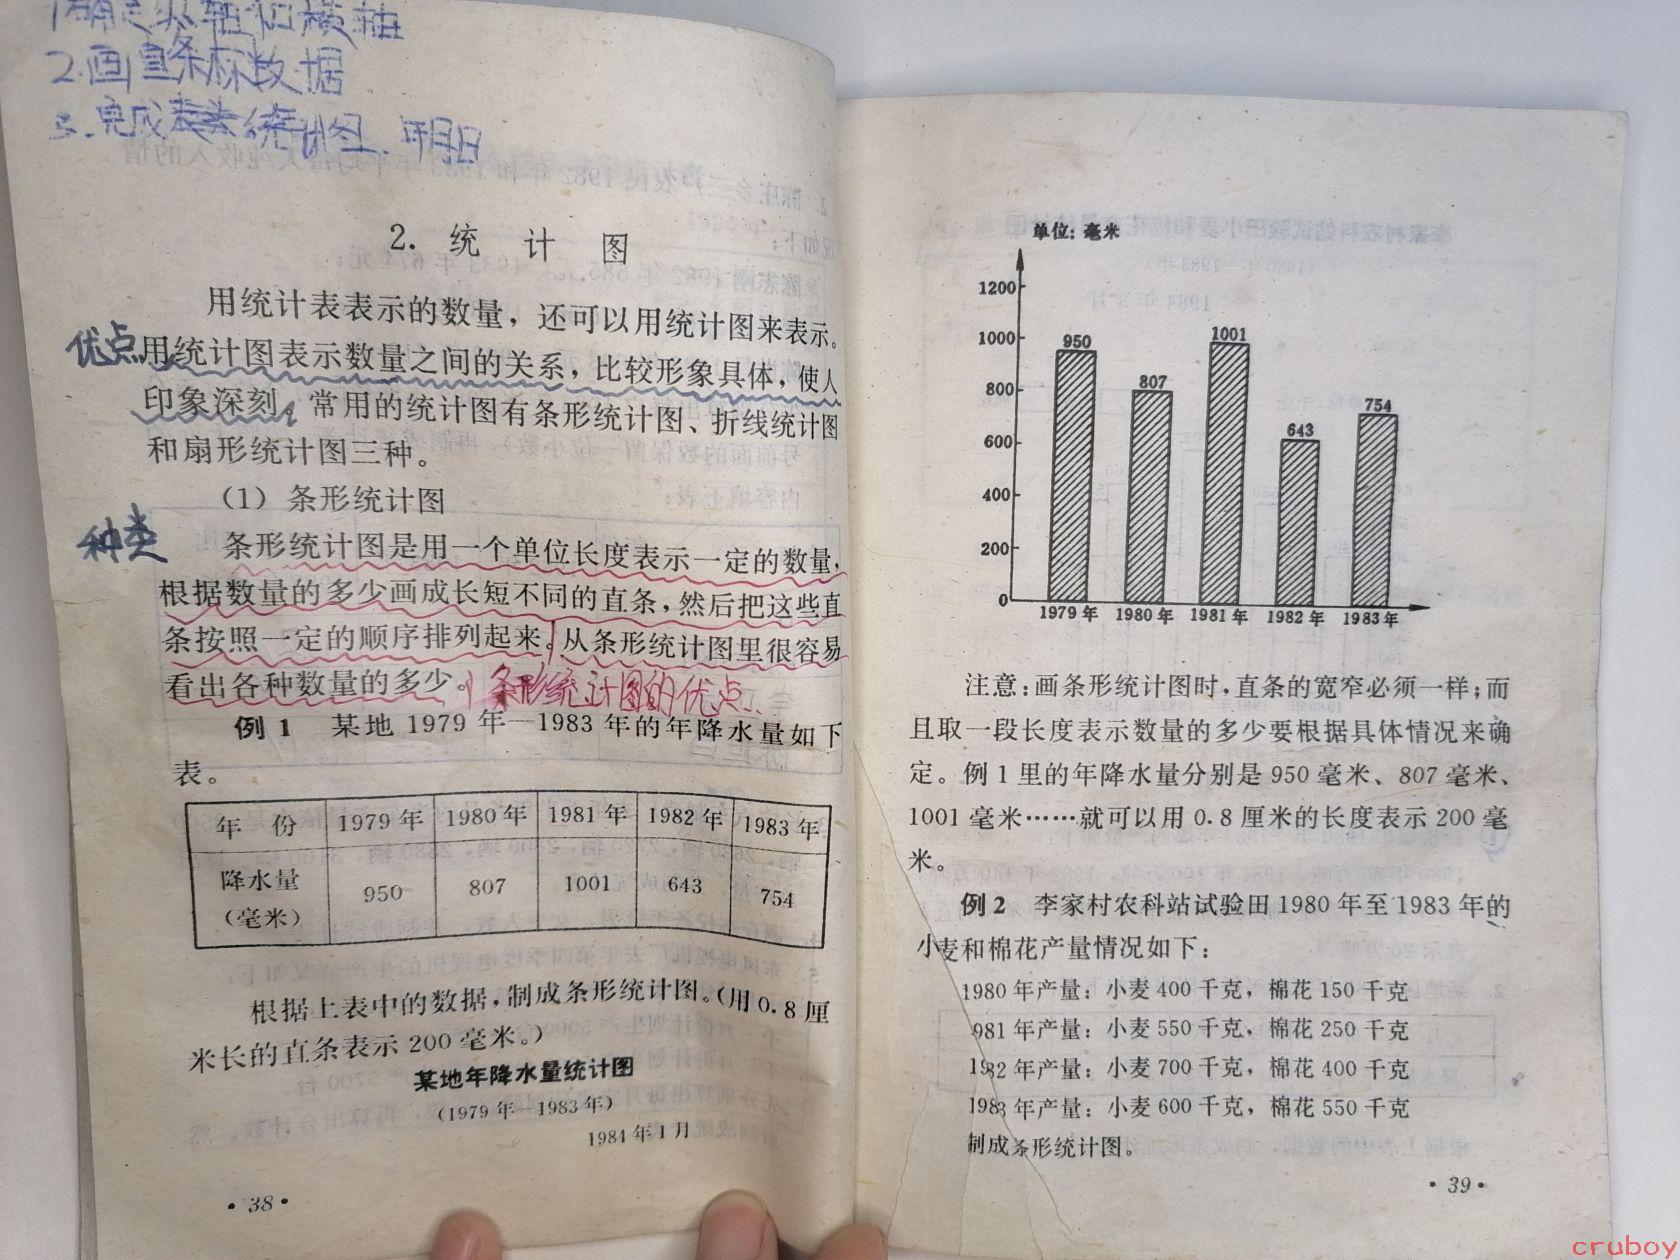 1确定纵轴和横轴
2.画直条标数据
3.完成统计图.年月日
2. 统 计 图
用统计表表示的数量，还可以用统计图来表示。
优点 用统计图表示数量之间的关系，比较形象具体，使人
印象深刻。常用的统计图有条形统计图、折线统计图
和扇形统计图三种。
（1）条形统计图
种类
条形统计图是用一个单位长度表示一定的数量，
根据数量的多少画成长短不同的直条，然后把这些直
条按照一定的顺序排列起来。从条形统计图里很容易
看出各种数量的多少。条形统计图的优点.
例 1 某地 1979 年—1983 年的年降水量如下
表。
年 份 1979 年 1980 年 1981 年 1982 年 1983 年
降水量
（毫米） 950 807 1001 643 754
根据上表中的数据，制成条形统计图。（用 0.8 厘
米长的直条表示 200 毫米。）
某地年降水量统计图
（1979 年—1983 年）
1984 年 1 月
·38·
单位: 毫米
1200
1000
800
600
400
200
0
950
807
1001
643
754
1979 年 1980 年 1981 年 1982 年 1983 年
注意：画条形统计图时，直条的宽窄必须一样；而
且取一段长度表示数量的多少要根据具体情况来确
定。例 1 里的年降水量分别是 950 毫米、807 毫米、
1001 毫米……就可以用 0.8 厘米的长度表示 200 毫
米。
例 2 李家村农科站试验田 1980 年至 1983 年的
小麦和棉花产量情况如下：
1980 年产量：小麦 400 千克，棉花 150 千克
981 年产量：小麦 550 千克，棉花 250 千克
1982 年产量：小麦 700 千克，棉花 400 千克
1983 年产量：小麦 600 千克，棉花 550 千克
制成条形统计图。
·39·
cruboy